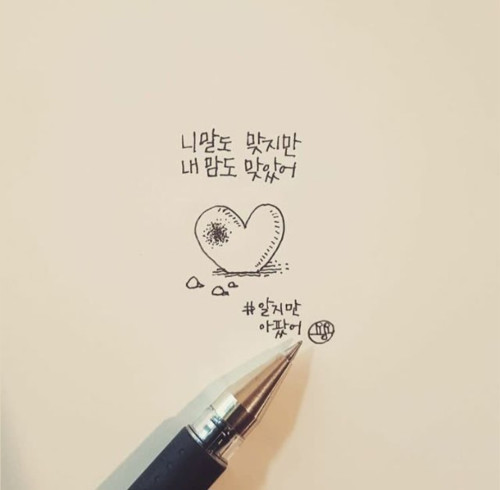 니말도 맞지만
내 맘도 맞았어
#알지만
아팠어